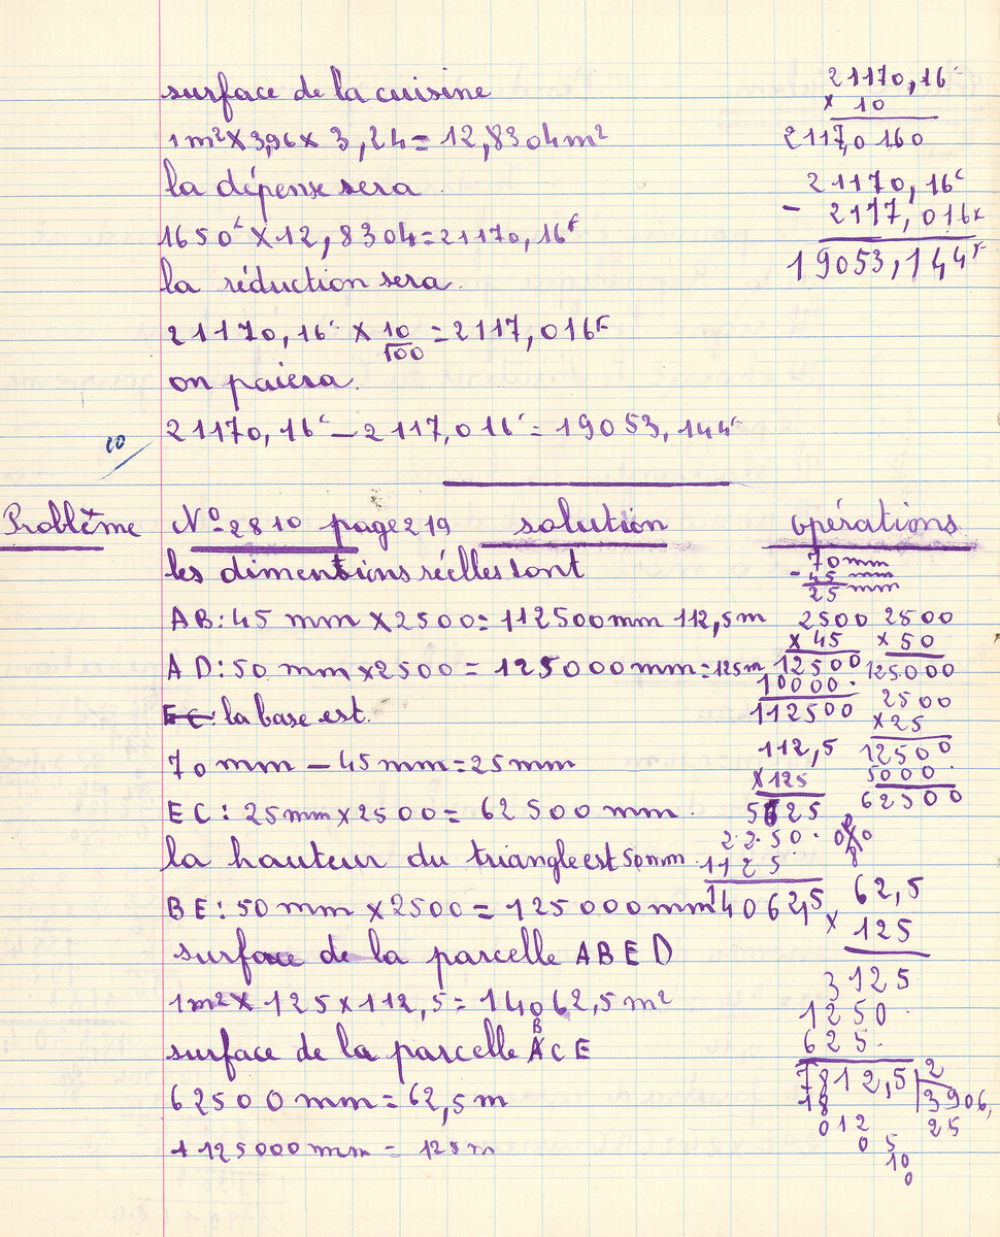 surface de la cuisine
1m²×3,96×3,24=12,8304m²
la dépense sera
1650ᶠ×12,8304=21170,16ᶠ
la réduction sera.
21170,16ᶠ × 10/100 = 2117,016ᶠ
on paiera.
21170,16ᶠ - 2117,016ᶠ = 19053,144ᶠ
10
21170,16ᶠ
× 10
2117,0160
21170,16ᶠ
- 2117,016ᶠ
19053,144ᶠ
Problème N° 2810 page 219 solution opérations
les dimensions réelles sont
AB: 45 mm ×2500= 112500mm 112,5m
AD: 50 mm ×2500 = 125000mm=125m
EC: la base est.
70mm - 45mm=25mm
EC: 25mm×2500= 62500 mm.
la hauteur du triangle est 50mm.
BE: 50mm ×2500 = 125000mm
surface de la parcelle ABED
1m² × 125×112,5= 14062,5m²
surface de la parcelle BCE
62500mm=62,5m
125000mm = 125m
70mm
- 45 mm
25mm
2500
× 45
12500
10000.
112500
2500
×50
125000
2500
×25
12500
5000.
62500
112,5
×125
5625
2250.
1125
14062,5
62,5
× 125
3125
1250.
625.
7812,5 | 2
18 3906,
012 25
05
10
0